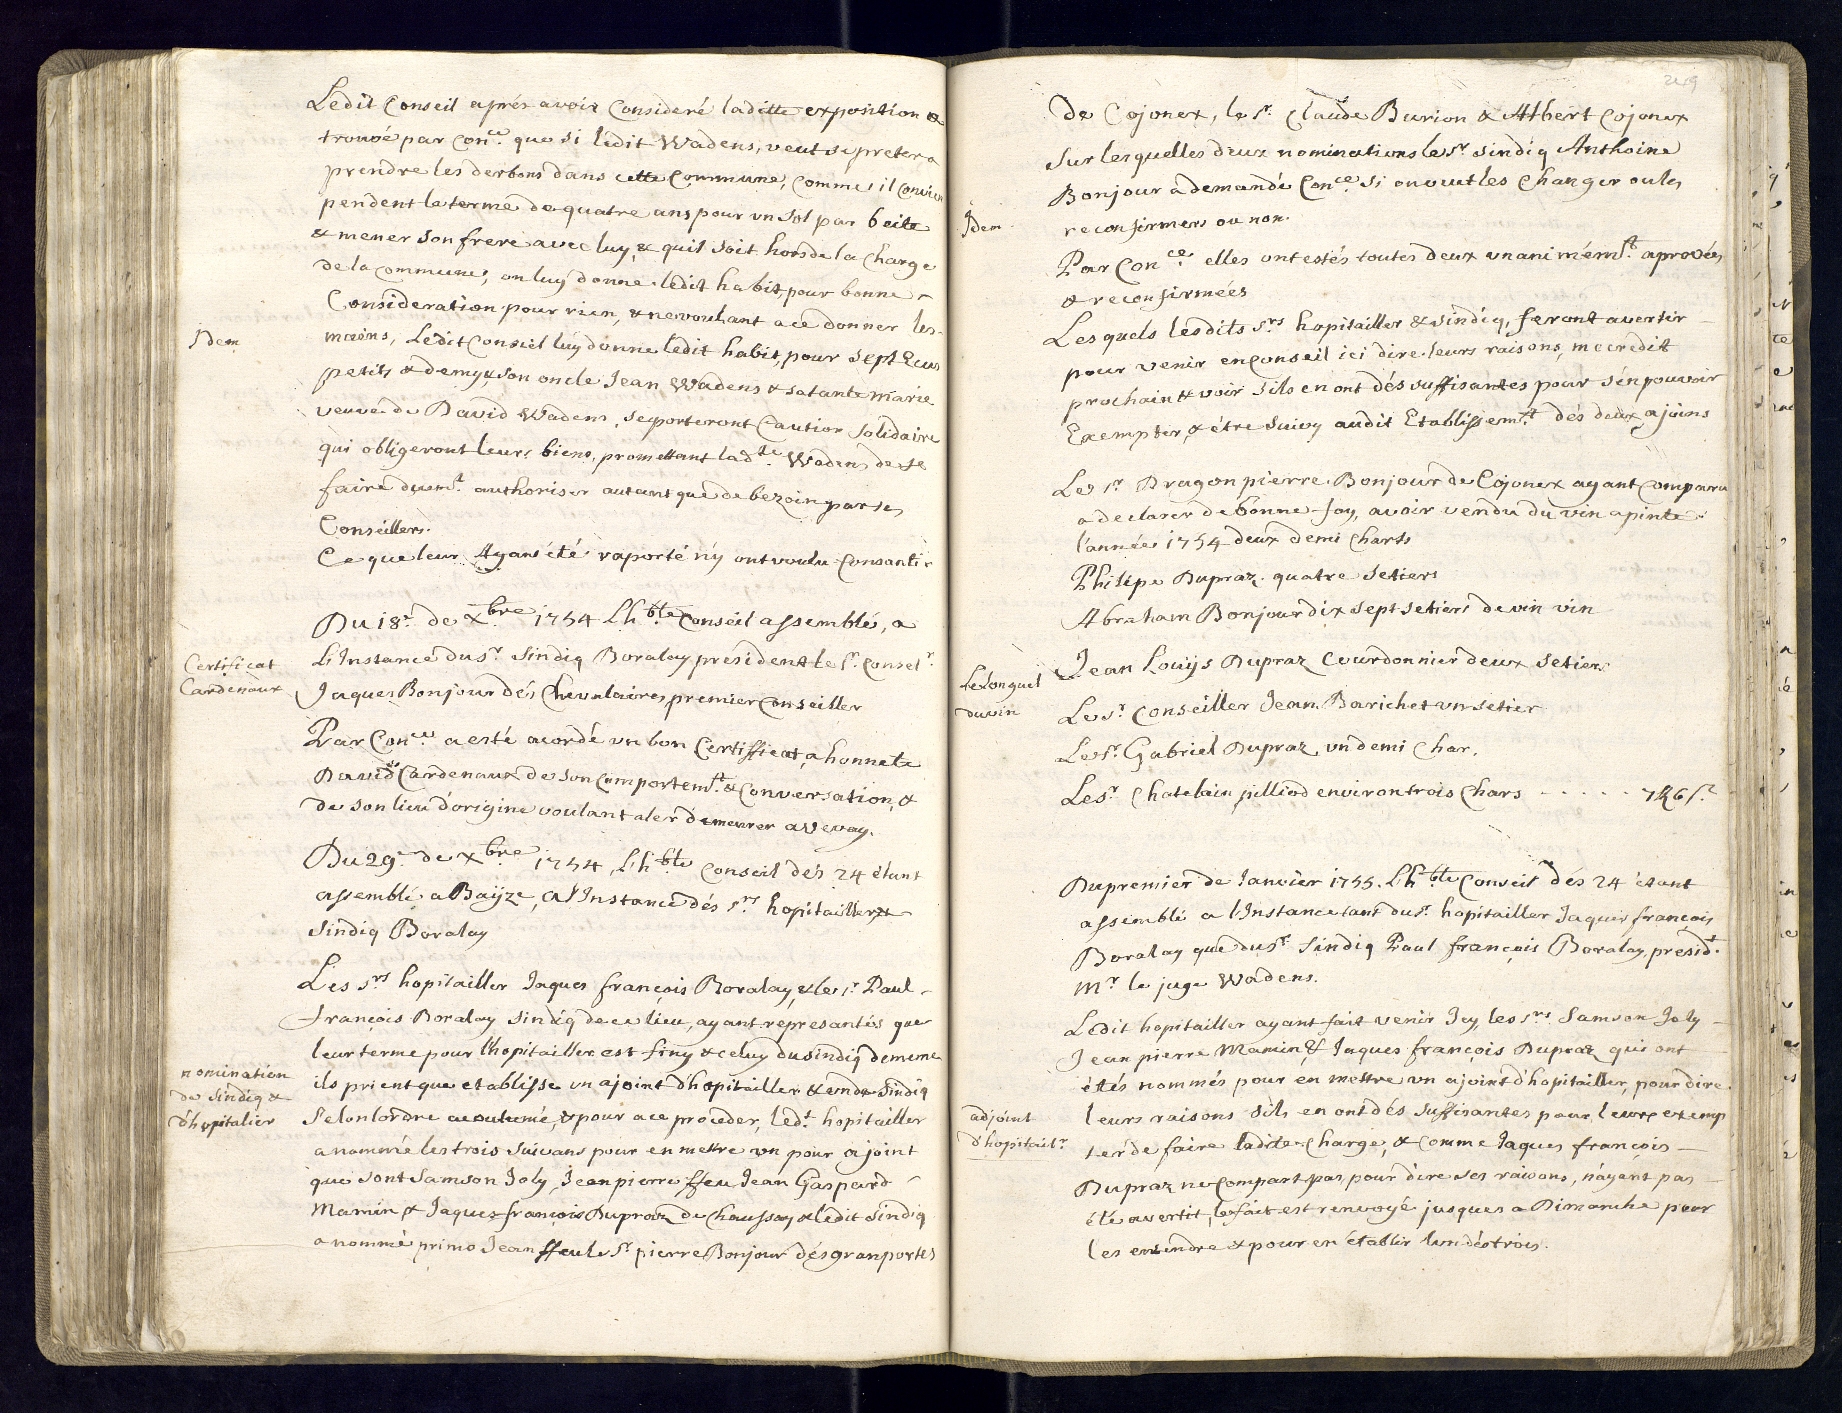 Ledit Conseil aprés avoir Consideré laditte exposition a
trouvé par Con.ce que si ledit Wadens, veut se preter a
prendre les derbons dans cette Commune, comme il convien
pendent le terme de quatre ans pour un sol par beite
& mener son frere avec luy, & quil soit hors de la Charge
de la Commune, on luy donne ledit habit, pour bonne
Consideration pour rien, & ne voulant a ce donner les
Idem
mains, Ledit Conseil luy donne ledit habit, pour sept Ecus
petits & demy, & son oncle Jean Wadens & sa tante Marie
veuve de David Wadens, se porteront Caution Solidaire
qui obligeront leurs biens, promettant lad.te Wadens de se
faire duem.t authoriser autant que de bezoin par ses
Conseillers.
Ce que leur Ayans été raporté n'y ont voulu Consantir
Du 18.e de Xbre 1754 Lh.ble Conseil assemblé, a
Certificat
Cardenaux
L'Instance du s.r Sindiq Boralay president le s.r Consel.r
Jaques Bonjour dés Chevalaires premier Conseiller
Par Con.ce a esté acordé un bon Certifficat, a honnete
David Cardenaux de son Comportem.t & Conversation, &
de son lieu d'origine voulant aler demeurer a Vevay.
Du 29.e de Xbre 1754, Lh.ble Conseil dés 24 étant
assemblé a Baÿze, a l'Instance dés s.rs hopitailler et
Sindiq Boralay
Les s.rs hopitailler Jaques françois Boralay, & le s.r Paul
françois Boralay Sindiq de ce lieu, ayant represantés que
leur terme pour l'hopitailler est finy & celuy du sindiq de meme
nomination
de Sindiq &
d'hopitalier
ils prient que etablisse un ajoint d'hopitailler & un de Sindiq
Selon lordre acoutumé, & pour a ce proceder, led.t hopitailler
a nommé les trois suivans pour en mettre un pour ajoint
que sont Samson Joly, Jean pierre ffeu Jean Gaspard
Mamin & Jaques françois Dupraz de Chaussay & ledit sindiq
a nommé primo Jean ffeu le S.r pierre Bonjour dés granportes
249
de Cojonex, le s.r Claude Burion & Albert Cojonex
Sur lesquelles deux nominations le s.r sindiq Anthoine
Bonjour a demandé Con.ce Si on veut les Changer ou les
Idem
reconfirmers ou non.
Par Con.ce elles ont estés toutes deux unanimém.t aprovées
& reconfirmées
Les quels lesdits s.rs hopitailler & sindiq, feront avertir
pour venir en Conseil ici dire leurs raisons, mecredit
prochain & voir s'ils en ont dés suffisantes pour s'en pouvoir
Exempter, & étre suivy audit Etablissem.t dés deux ajoins
Le s.r Dragon pierre Bonjour de Cojonex ayant Comparu
a declarer de bonne foy, avoir vendu du vin a pinte
l'année 1754 deux demi Chars
Philipe Dupraz quatre Setiers
Abraham Bonjour dix sept setiers de vin vin
Le longuel
du vin
Jean Louijs Dupraz Courdonnier deux setiers
Le s.r Conseiller Jean Barichet un setier
Le s.r Gabriel Dupraz un demi Char.
Le s.r Chatelain pilliod environ trois Chars
Du premier de Janvier 1755. Lh.ble Conseil dés 24 étant
assemblé a l'Instance tant du s.r hopitailler Jaques françois
Boralay que du s.r Sindiq Paul françois Boralay, presid.t
M.r le juge Wadens.
Ledit hopitailler ayant fait venir Icy, les s.rs Samson Joly
Jean pierre Mamin, & Jaques françois Dupraz qui ont
étés nommés pour en mettre un ajoint d'hopitailler, pour dire
adjoint
d'hopitail.r
leurs raisons s'ils en ont dés suffisantes pour leurs exemp
ter de faire ladite Charge, & comme Jaques françois
Dupraz ne Compart pas, pour dire ses raisons, n'ayant pas
été avertit, le fait est renvoyé jusques a Dimanche pour
les entendre & pour en établir lun dés trois.